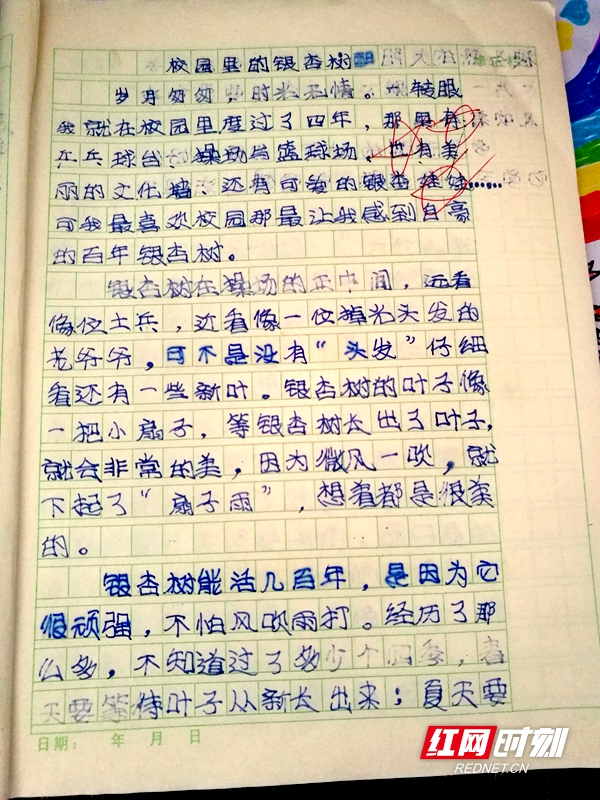 校园里的银杏树
岁月匆匆，时光无情。一转眼
我就在校园里度过了四年，那里有
乒乓球台、操场与篮球场，也有美
丽的文化墙，还有可爱的银杏娃娃……
可我最喜欢校园那最让我感到自豪
的百年银杏树。
银杏树在操场的正中间，远看
像位士兵，近看像一位掉光头发的
老爷爷，可不是没有“头发”仔细
看还有一些新叶。银杏树的叶子像
一把小扇子，等银杏树长出了叶子，
就会非常的美，因为微风一吹，就
下起了“扇子雨”，想着都是很美
的。
银杏树能活几百年，是因为它
很顽强，不怕风吹雨打。经历了那
么多，不知道过了多少个四季，春
天要等待叶子从新长出来；夏天要
日期： 年 月 日
红网时刻
REDNET.CN